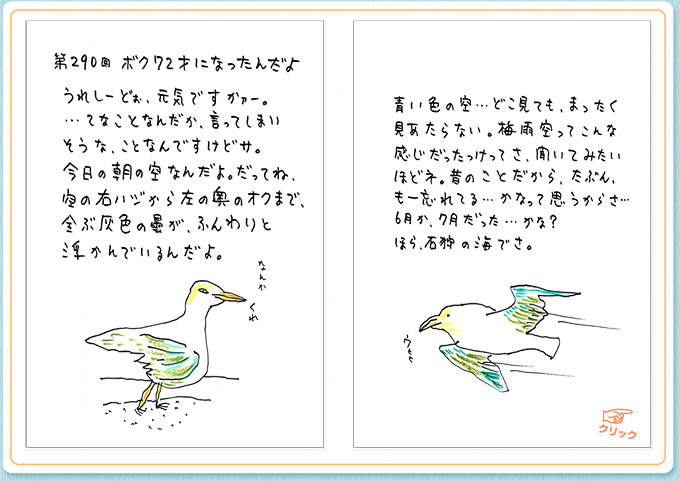 第290回 ボク72才になったんだよ
うれしーどぉ、元気ですかァー。
…てなことなんだか、言ってしまい
そうな、ことなんですけどサ。
今日の朝の空なんだよ。だってね、
空の右ハジから左の奥のオクまで、
全ぶ灰色の曇が、ふんわりと
浮かんでいるんだよ。
なんか
くれ
青い色の空…どこ見ても、まったく
見あたらない。梅雨空ってこんな
感じだったっけってさ、聞いてみたい
ほどネ。昔のことだから、たぶん、
もー忘れてる…かなって思うからさ…
6月か、7月だった…かな?
ほら、石狩の海でさ。
クリック